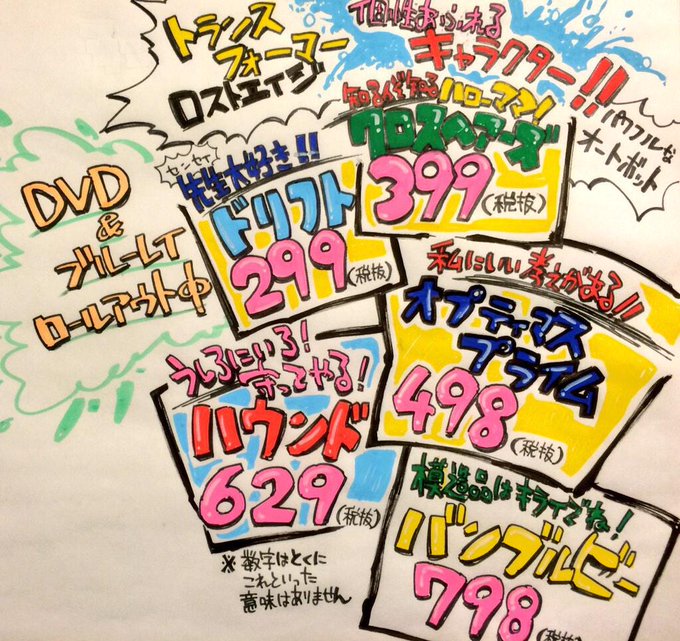 トランス
フォーマー
ロストエイジ
個性あふれる
キャラクター!!
パワフルな
オートボット
DVD
&
ブルーレイ
ロールアウト中
知る人ぞ知るハローママ!
クロスヘアーズ
399(税抜)
センセイ
先生大好き!!
ドリフト
299(税抜)
私にいい考えがある!!
オプティマス
プライム
498(税抜)
うしろにいろ!
守ってやる!
ハウンド
629(税抜)
※数字はとくに
これといった
意味はありません
模造品はキライでね!
バンブルビー
798(税抜)